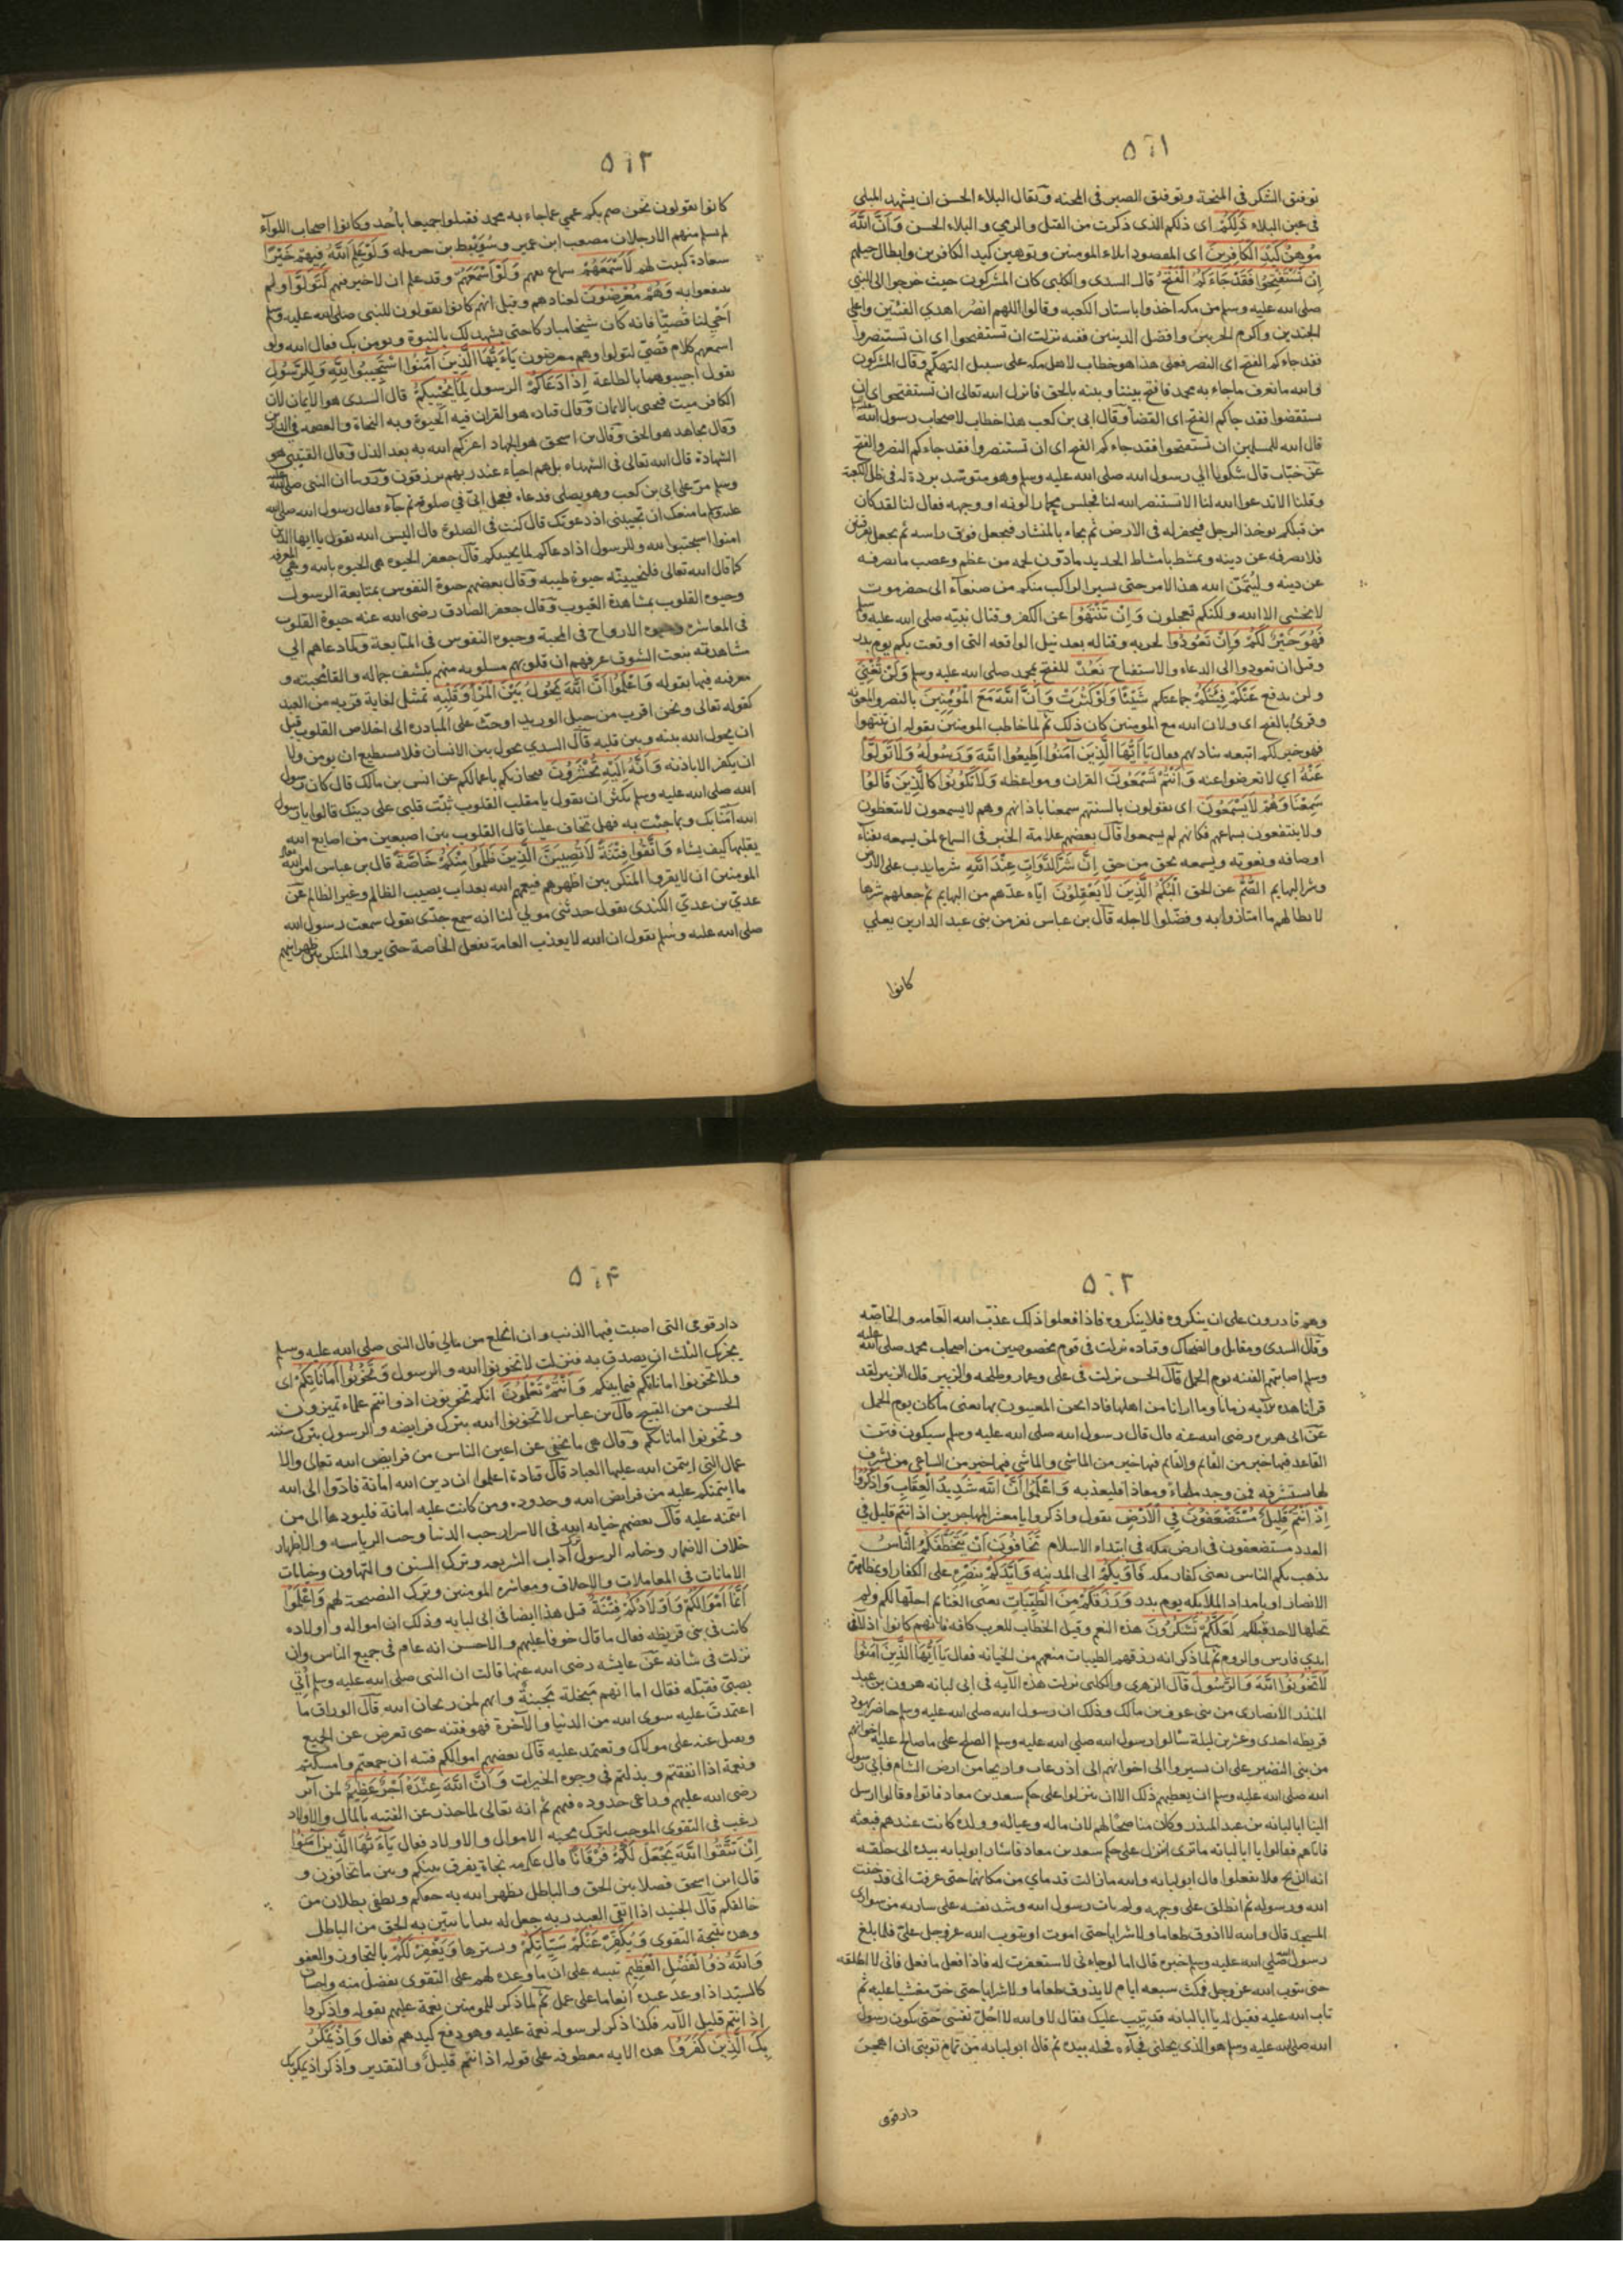 ٥٦١
توفيق الشكر في المنحة وتوفيق الصبر في المحنه وتقال البلاء الحسن ان يشهد المبلى
في عين البلاء ذَلِكُمْ اى ذلكم الذى ذكرت من القتل والرمي و البلاء الحسن وَاَنَّ اللَّهَ
مُوهِنُ كَيْدِ الْكَافِرِينَ اى المقصود ابلاء المومنين وتوهين كيد الكافرين وابطال حيلهم
اِنْ تَسْتَفْتِحُوا فَقَدْ جَاءَكُمُ الْفَتْحُ قال السدى والكلبى كان المشركون حيث خرجوا الى النبى
صلى الله عليه وسلم من مكه اخذوا باستار الكعبه وقالوا اللهم انصر اهدى الفئتين واعلى
الجندين واكرم الحزبين وافضل الدينين ففيه نزلت ان تستفتحوا اى ان تستنصروا
فقد جاءكم الفتح اى النصر فعلى هذا هو خطاب لاهل مكه على سبيل التهكم وقال المشركون
والله مانعرف ماجاء به محمد فافتح بيننا وبينه بالحق فانزل الله تعالى ان تستفتحوا اى ان
تستقضوا فقد جاكم الفتح اى القضا وقال ابى بن كعب هذا خطاب لاصحاب رسول الله
قال الله للمسلمين ان تستفتحوا فقد جاءكم الفتح اى ان تستنصروا فقد جاءكم النصر والفتح
عن خبّاب قال شكونا الى رسول الله صلى الله عليه وسلم وهو متوسّد بردة له فى ظل الكعبة
وقلنا الاتدعوا الله لنا الا تستنصر الله لنا فجلس محمارا لونه او وجهه فعال لنا لقد كان
من قبلكم يوخذ الرجل فيحفر له فى الارض ثم يجاء بالمنشار فيجعل فوق راسه ثم يجعل فرقتين
فلا يصرفه عن دينه ويمشط بامشاط الحديد مادون لحمه من عظم وعصب ما يصرفه
عن دينه وليُتِمَّن الله هذا الامر حتى يسير الراكب منكم من صنعاء الى حضرموت
لايخشى الا الله ولكنكم تعجلون وَاِنْ تَنْتَهُوا عن الكفر وقتال نبيّه صلى الله عليه وسلم
فَهُوَ خَيْرٌ لَكُمْ وَاِنْ تَعُودُوا لحربه وقتاله بعد نيل الواقعه التى اوقعت بكم يوم بدر
وقيل ان تعودوا الى الدعاء والاستفتاح نَعُدْ للفتح بمحمد صلى الله عليه وسلم وَلَنْ تُغْنِيَ
ولن يدفع عَنْكُمْ فِئَتُكُمْ جماعتكم شَيْئًا وَلَوْ كَثُرَتْ وَاَنَّ اللَّهَ مَعَ الْمُؤْمِنِينَ بالنصر والمعونه
وقرئ بالفتح اى ولان الله مع المومنين كان ذلك ثم لما خاطب المومنين بقوله ان تنتهوا
فهو خير لكم اتبعه فعال يَا اَيُّهَا الَّذِينَ آمَنُوا اَطِيعُوا اللَّهَ وَرَسُولَهُ وَلَا تَوَلَّوْا
عَنْهُ اي لا تعرضوا عنه وَاَنْتُمْ تَسْمَعُونَ القران ومواعظه وَلَا تَكُونُوا كَالَّذِينَ قَالُوا
سَمِعْنَا وَهُمْ لَا يَسْمَعُونَ اى يقولون بالسنتهم سمعنا باذانهم وهم لايسمعون لايتعظون
ولاينتفعون بسماعهم فكانهم لم يسمعوا قال بعضهم علامة الخير فى السماع لمن يسمعه بفناء
اوصافه ونعوته ويسمعه بحق من حق اِنَّ شَرَّ الدَّوَابِّ عِنْدَ اللَّهِ شر ما يدب على الارض
وشر البهايم الصُّمُّ عن الحق الْبُكْمُ الَّذِينَ لَا يَعْقِلُونَ ايّاه عدّهم من البهايم ثم جعلهم شرها
لابطالهم ما امتازوا به وفضّلوا لاجله قال بن عباس نفر من بنى عبد الدارين يعلى
كانوا
٥٦٢
كانوا يقولون نحن صم بكم عمي عما جاء به محمد فقتلوا جميعا باُحد وكانوا اصحاب اللوآء
لم يسلم منهم الا رجلان مصعب ابن عمير وسُوَيْبِط بن حرمله وَلَوْ عَلِمَ اللَّهُ فِيهِمْ خَيْرًا
سعادة كتبت لهم لَاَسْمَعَهُمْ سماع تفهم وَلَوْ اَسْمَعَهُمْ وقد علم ان لا خير فيهم لَتَوَلَّوْا ولم
ينتفعوا به وَهُمْ مُعْرِضُونَ لعنادهم وقيل انهم كانوا يقولون للنبى صلى الله عليه وسلم
اَحْيِ لنا قُصَيًّا فانه كان شيخا مباركا حتى يشهد لك بالنبوة ونومن بك فعال الله ولو
اسمعهم كلام قُصَيّ لتولوا وهم معرضون يَاءَيُّهَا الَّذِينَ آمَنُوا اسْتَجِيبُوا لِلَّهِ وَلِلرَّسُولِ
يقول اجيبوهما بالطاعة اِذَا دَعَاكُمْ الرسول لِمَا يُحْيِيكُمْ قال السدى هو الايمان لان
الكافر ميت فيحيى بالايمان وقال قتاده هو القران فيه الحيوة وبه النجاة والعصمه فى الدارين
وقال مجاهد هو الحق وقال بن اسحق هو الجهاد اعزكم الله به بعد الذل وقال القتيبى هو
الشهادة قال الله تعالى فى الشهداء بل هم احياء عند ربهم يرزقون وروينا ان النبى صلى الله
وسلم مرّ على ابى بن كعب وهو يصلى فدعاه فعجل ابىّ في صلوته ثم جآء فعال رسول الله صلى الله
عليه وسلم ما منعك ان تجيبنى اذ دعوتك قال كنت فى الصلوة قال اليس الله يقول يا ايها الذين
امنوا استجيبوا لله وللرسول اذا دعاكم لما يحييكم قال جعفر الحيوة هى الحيوه بالله وهي المعرفه
كما قال الله تعالى فلنحيينّه حيوة طيبه وقال بعضهم حيوة النفوس بمتابعة الرسول
وحيوه القلوب بمشاهدة الغيوب وقال جعفر الصادق رضى الله عنه حيوة القلوب
فى المعاشره وحيوه الارواح فى المحبة وحيوه النفوس فى المتابعة ولما دعاهم الى
مشاهدته بنعت الشوق عرفهم ان قلوبهم مسلوبه منهم بكشف جماله والقا محبته و
معرفته فيها بقوله وَاعْلَمُوا اَنَّ اللَّهَ يَحُولُ بَيْنَ الْمَرْءِ وَقَلْبِهِ تمثيل لغاية قربه من العبد
كقوله تعالى ونحن اقرب من حبل الوريد او حثّ على المبادره الى اخلاص القلوب قبل
ان يحول الله بينه وبين قلبه قال السدي يحول بين الانسان فلا يستطيع ان يومن ولا
ان يكفر الا باذنه وَاَنَّهُ اِلَيْهِ تُحْشَرُونَ فيجازيكم باعمالكم عن انس بن مالك قال كان رسول
الله صلى الله عليه وسلم يكثر ان يقول يا مقلب القلوب ثبّت قلبى على دينك قالوا يا رسول
الله آمنّا بك وبما جئت به فهل تخاف علينا قال القلوب بين اصبعين من اصابع الله
يقلبها كيف يشاء وَاتَّقُوا فِتْنَةً لَا تُصِيبَنَّ الَّذِينَ ظَلَمُوا مِنْكُمْ خَاصَّةً قال بن عباس امر الله
المومنين ان لايقروا المنكر بين اظهرهم فيعمهم الله بعذاب يصيب الظالم وغير الظالم عن
عديّ بن عديّ الكندى يقول حدثنى مولى لنا انه سمع جدّى يقول سمعت رسول الله
صلى الله عليه وسلم يقول ان الله لايعذب العامة بفعل الخاصة حتى يروا المنكر بين ظهرانيهم
٥٦٣
وهم قادرون على ان ينكروه فلا ينكروه فاذا فعلوا ذلك عذّب الله العامه والخاصه
وقال السدى ومقاتل والضحاك وقتاده نزلت فى قوم مخصوصين من اصحاب محمد صلى الله عليه
وسلم اصابتهم الفتنه يوم الجمل قال الحسن نزلت فى على وعمار وطلحه والزبير قال الزبير لقد
قرانا هذه الآيه زمانا وما ارانا من اهلها فاذا نحن المعنيون بها يعنى ما كان يوم الجمل
عن ابى هريره رضى الله عنه قال قال رسول الله صلى الله عليه وسلم سيكون فتن
القاعد فيها خير من القائم والقايم فيها خير من الماشى والماشى فيها خير من الساعى من تشرف
لها يستشرفه فمن وجد ملجاء ومعاذا فليعذ به وَاعْلَمُوا اَنَّ اللَّهَ شَدِيدُ الْعِقَابِ وَاذْكُرُوا
اِذْ اَنْتُمْ قَلِيلٌ مُسْتَضْعَفُونَ فِي الْاَرْضِ يقول واذكروا يا معشر المهاجرين اذ انتم قليل فى
العدد مستضعفون فى ارض مكه فى ابتداء الاسلام تَخَافُونَ اَنْ يَتَخَطَّفَكُمُ النَّاسُ
يذهب بكم الناس يعنى كفار مكه فَآوَيكُمْ الى المدينه وَاَيَّدَكُمْ بِنَصْرِهِ على الكفار او بمظاهرة
الانصار او بامداد الملائكه يوم بدر وَرَزَقَكُمْ مِنَ الطَّيِّبَاتِ يعنى الغنايم احلّها لكم ولم
تحلها لاحد قبلكم لَعَلَّكُمْ تَشْكُرُونَ هذه النعم وقيل الخطاب للعرب كافه فانهم كانوا اذلاء فى
ايدى فارس والروم ثم لما ذكر انه رزقهم الطيبات منعهم من الخيانه فعال يَا اَيُّهَا الَّذِينَ آمَنُوا
لَا تَخُونُوا اللَّهَ وَالرَّسُولَ قال الزهرى والكلبى نزلت هذه الآيه فى ابى لبانه هرون بن عبد
المنذر الانصارى من بنى عوف بن مالك وذلك ان رسول الله صلى الله عليه وسلم حاصر يهود
قريظه احدى وعشرين ليلة سالوا رسول الله صلى الله عليه وسلم الصلح على ما صالح عليه اخوانهم
من بنى النضير على ان يسيروا الى اخوانهم الى اذرعات واريحا من ارض الشام فابى رسول
الله صلى الله عليه وسلم ان يعطيهم ذلك الا ان ينزلوا على حكم سعد بن معاذ فابوا وقالوا ارسل
الينا ابا لبانه بن عبد المنذر وكان مناصحًا لهم لان ماله وعياله وولده كانت عندهم فبعثه
فاتاهم فعالوا يا ابا لبانه ماترى اننزل على حكم سعد بن معاذ فاشار ابو لبانه بيده الى حلقه
انه الذبح فلا تفعلوا قال ابو لبانه والله مازالت قدماي من مكانهما حتى عرفت انى قد خنت
الله ورسوله ثم انطلق على وجهه ولم يات رسول الله وشد نفسه على ساريه من سوارى
المسجد قال والله لا اذوق طعاما ولا شرابا حتى اموت او يتوب الله عز وجل علىّ فلما بلغ
رسول الله صلى الله عليه وسلم خبره قال اما لو جاءنى لاستغفرت له فاذا فعل ما فعل فانى لا اطلقه
حتى يتوب الله عز وجل فمكث سبعه ايام لا يذوق طعاما ولا شرابا حتى خرّ مغشيا عليه ثم
تاب الله عليه فقيل له يا ابا لبانه قد تيب عليك فقال لا والله لا احُلّ نفسى حتى يكون رسول
الله صلى الله عليه وسلم هو الذى يحلنى فجآءه فحله بيده ثم قال ابو لبانه من تمام توبتى ان اهجر
دار قومى
٥٦٤
دار قومى التى اصبت فيها الذنب وان انخلع من مالى قال النبى صلى الله عليه وسلم
يجزيك الثلث ان يصدق به فنزلت لا تخونوا الله والرسول وَتَخُونُوا اَمَانَاتِكُمْ اى
ولا تخونوا اماناتكم فيما بينكم وَاَنْتُمْ تَعْلَمُونَ انكم تخونون او وانتم علماء تميزون
الحسن من القبيح قال بن عباس لا تخونوا الله بترك فرايضه والرسول بترك سنته
وتخونوا اماناتكم وقال هى ما يخفى عن اعين الناس من فرايض الله تعالى والا
عمال التى ايتمن الله عليها العباد قال قتادة اعلموا ان دين الله امانة فادّوا الى الله
ما ايتمنكم عليه من فرايض الله وحدوده ومن كانت عليه امانة فليودها الى من
ائتمنه عليه قال بعضهم خيانه الله فى الاسرار حب الدنيا وحب الرياسه والاظهار
خلاف الاضمار وخيانه الرسول آداب الشريعه وترك السنن والتهاون وخيانات
الامانات فى المعاملات والاخلاق ومعاشره المومنين وترك النصيحة لهم وَاعْلَمُوا
اَنَّمَا اَمْوَالُكُمْ وَاَوْلَادُكُمْ فِتْنَةٌ قيل هذا ايضا فى ابى لبابه وذلك ان امواله واولاده
كانت فى بنى قريظه فعال ما قال خوفا عليهم والاحسن انه عام فى جميع الناس وان
نزلت فى شانه عن عايشه رضى الله عنها قالت ان النبى صلى الله عليه وسلم اُتِي
بصبيّ فقبّله فقال اما انهم مبخلة مجبنة وانهم لمن ريحان الله قال الوراق ما
اعتمدت عليه سوى الله من الدنيا والآخرة فهو فتنه حتى تعرض عن الجميع
وتقبل عنه على مولاك وتعتمد عليه قال بعضهم اموالكم فتنه ان جمعتم وامسكتم
ونعمة اذا انفقتم وبذلتم فى وجوه الخيرات وَاَنَّ اللَّهَ عِنْدَهُ اَجْرٌ عَظِيمٌ لمن آثر
رضى الله عليهم وراعى حدوده فيهم ثم انه تعالى لما حذر عن الفتنه بالمال والاولاد
رغب فى التقوى الموجب لترك محبه الاموال والاولاد فعال يَآءَيُّهَا الَّذِينَ آمَنُوا
اِنْ تَتَّقُوا اللَّهَ يَجْعَلْ لَكُمْ فُرْقَانًا قال عكرمه نجاة يفرق بينكم وبين ما تخافون و
قال ابن اسحق فصلا بين الحق والباطل يظهر الله به حقكم ويطفى بطلان من
خالفكم قال الجنيد اذا اتقى العبد ربه جعل له تبيانا يتبين به الحق من الباطل
وهذه نتيجة التقوى وَيُكَفِّرْ عَنْكُمْ سَيِّئَاتِكُمْ ويسترها وَيَغْفِرْ لَكُمْ بالتجاوز والعفو
وَاللَّهُ ذُو الْفَضْلِ الْعَظِيمِ تنبيه على ان ما وعده لهم على التقوى تفضل منه واحسان
كالسيّد اذا وعد عبده انعاما على عمل ثم لما ذكر للمومنين نعمة عليهم بقوله واذكروا
اذ انتم قليل الآيه فكذا ذكر لرسوله نعمة عليه وهو دفع كيدهم فعال وَاِذْ يَمْكُرُ
بِكَ الَّذِينَ كَفَرُوا هذه الايه معطوفه على قوله اذ انتم قليل والتقدير واذكر اذ يمكر بك